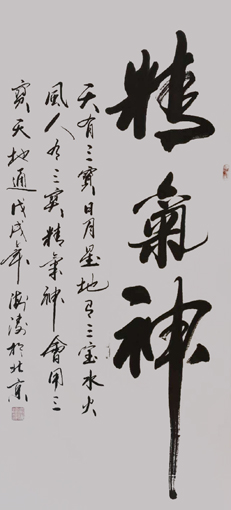 精氣神
天有三寶日月星地有三宝水火
風人有三寶精氣神會用三
寶天地通戊戌年海濤於北京